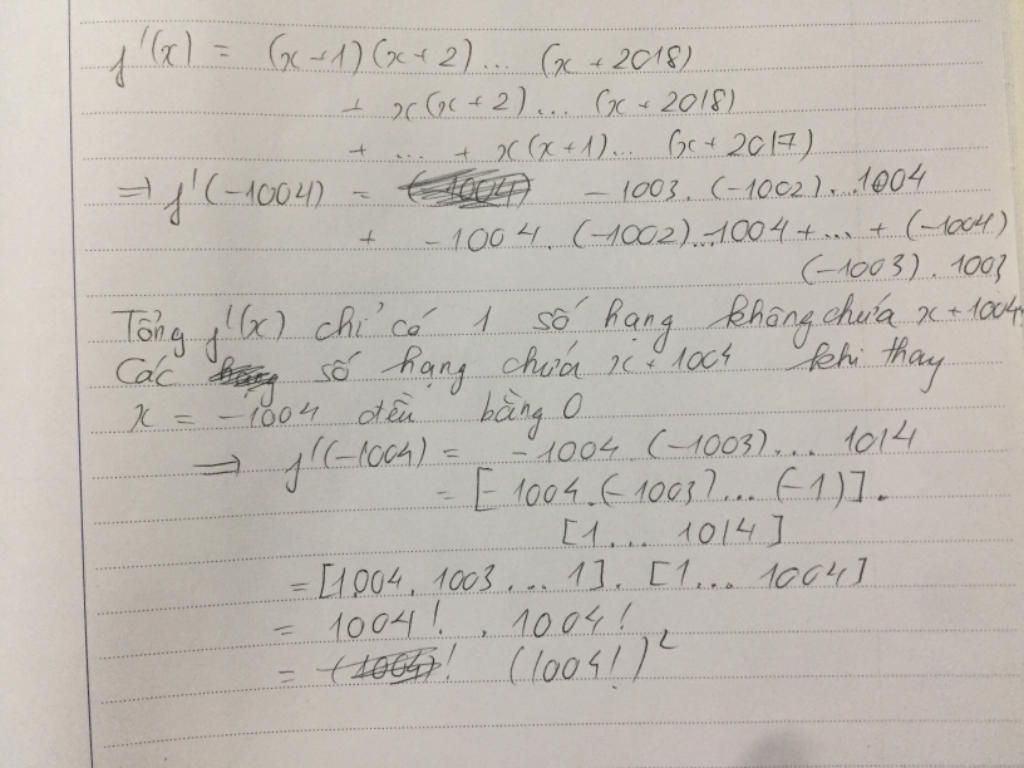 f'(x) = (x+1)(x+2)... (x+2018)
+ x(x+2)... (x+2018)
+ ... + x(x+1)... (x+2017)
⇒ f'(-1004) = -1003.(-1002)...1004
+ -1004.(-1002)...1004+...+(-1004)
(-1003).1003
Tổng f'(x) chỉ có 1 số hạng không chứa x+1004.
Các số hạng chứa x+1004 khi thay
x = -1004 đều bằng 0
⇒ f'(-1004) = -1004.(-1003)... 1014
= [-1004.(-1003)...(-1)].
[1... 1014]
= [1004.1003...1].[1... 1004]
= 1004! . 1004!
= (1004!)²